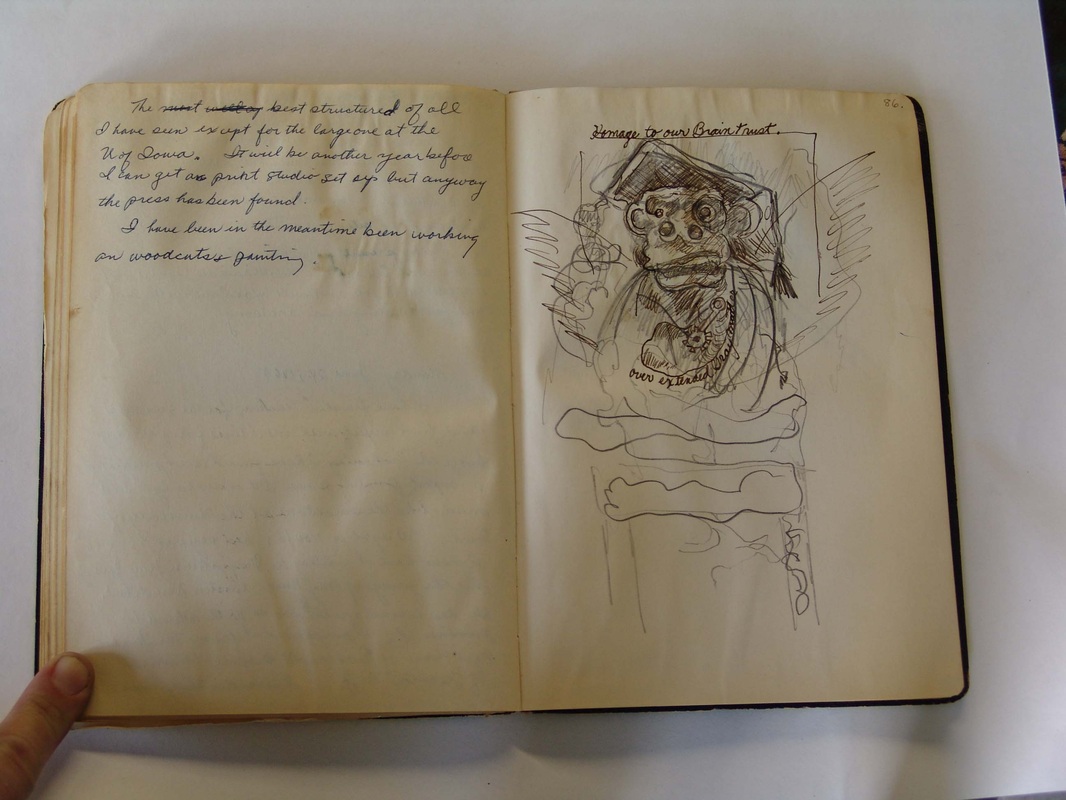 The most best structured of all
I have seen except for the large one at the
U of Iowa. It will be another year before
I can get a print studio set up but anyway
the press has been found.
I have been in the meantime been working
on woodcuts & painting.
86.
Homage to our Brain trust.
over extended